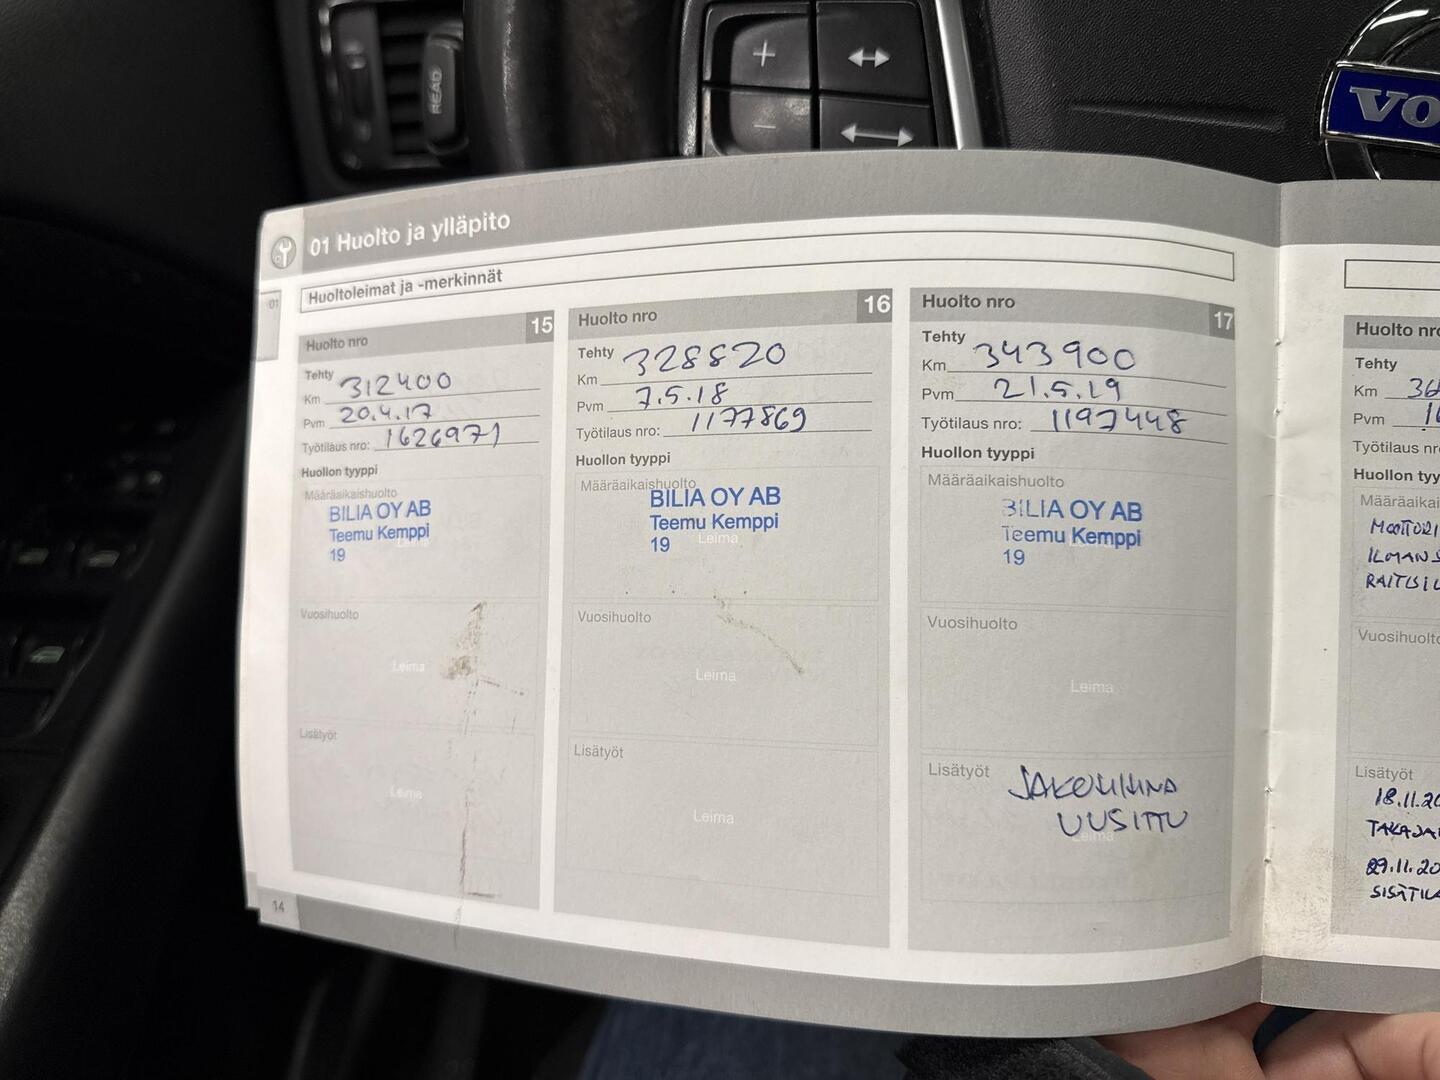 READ
VO
01 Huolto ja ylläpito
01
Huoltoleimat ja -merkinnät
Huolto nro 15
Tehty
Km 312400
Pvm 20.4.17
Työtilaus nro: 1626971
Huollon tyyppi
Määräaikaishuolto
BILIA OY AB
Teemu Kemppi
19
Leima
Vuosihuolto
Leima
Lisätyöt
Leima
14
Huolto nro 16
Tehty
Km 328820
Pvm 7.5.18
Työtilaus nro: 1177869
Huollon tyyppi
Määräaikaishuolto
BILIA OY AB
Teemu Kemppi
19
Leima
Vuosihuolto
Leima
Lisätyöt
Leima
Huolto nro 17
Tehty
Km 343900
Pvm 21.5.19
Työtilaus nro: 1197448
Huollon tyyppi
Määräaikaishuolto
BILIA OY AB
Teemu Kemppi
19
Vuosihuolto
Leima
Lisätyöt
JAKOHIHNA
UUSITTU
Leima
Huolto nro
Tehty
Km
Pvm
Työtilaus nr
Huollon ty
Määräaikai
MOOTTORI
ILMANS
RAITISIL
Vuosihuolto
Lisätyöt
18.11.20
TAKAJA
29.11.20
SISÄTIL